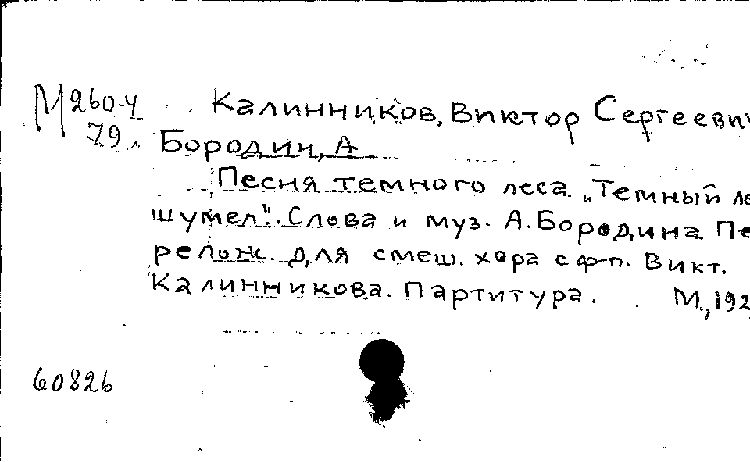 М260-4 Калинников, Виктор Сергеевич
79 Бородин, А
Песня темного леса. „Темный ле
шумел". Слова и муз. А. Бородина. Пе
релож. для смеш. хора с ф-п. Викт.
Калинникова. Партитура. М., 192
60826